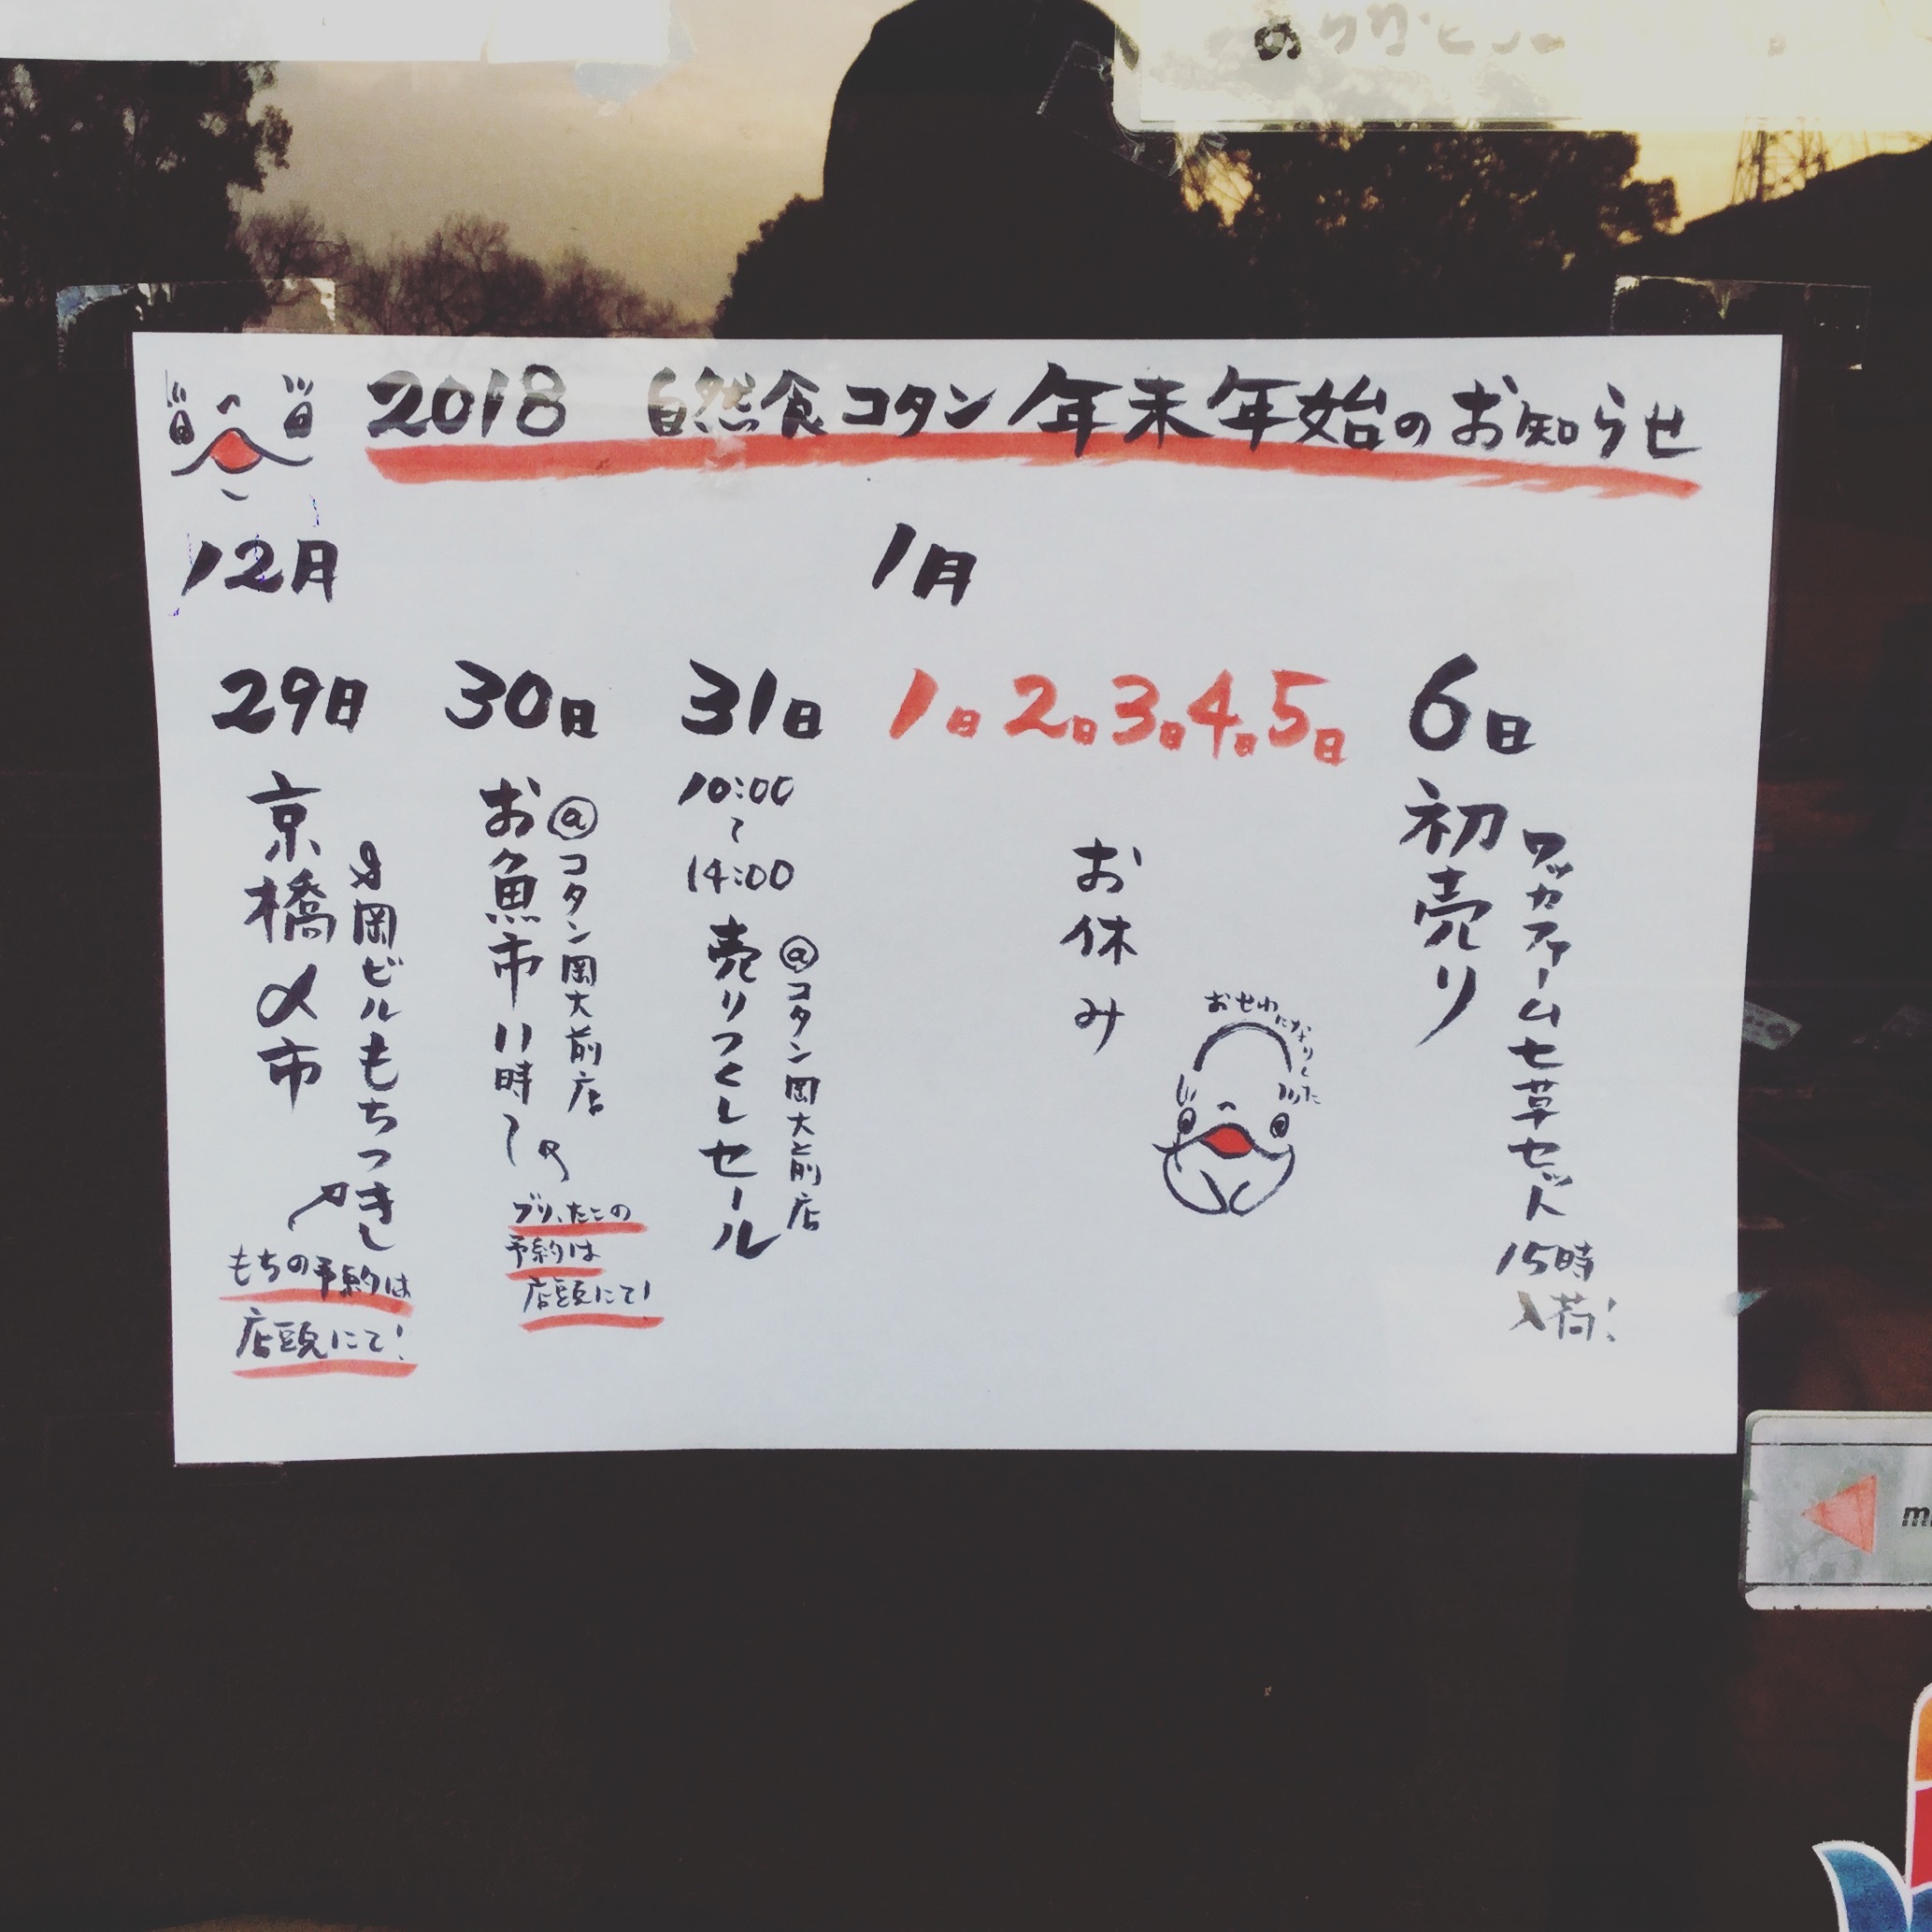 2018 自然食コタン年末年始のお知らせ
12月
1月
29日
京橋〆市
岡ビルもちつきし
もちの予約は
店頭にて!
30日
@コタン岡大前店
お魚市11時〜
ブリ、たこの
予約は
店頭にて!
31日
10:00
〜
14:00
@コタン岡大前店
売りつくしセール
1日2日3日4日5日
お休み
おせわになりました
6日
初売り
ワッカファーム七草セット
15時
入荷!